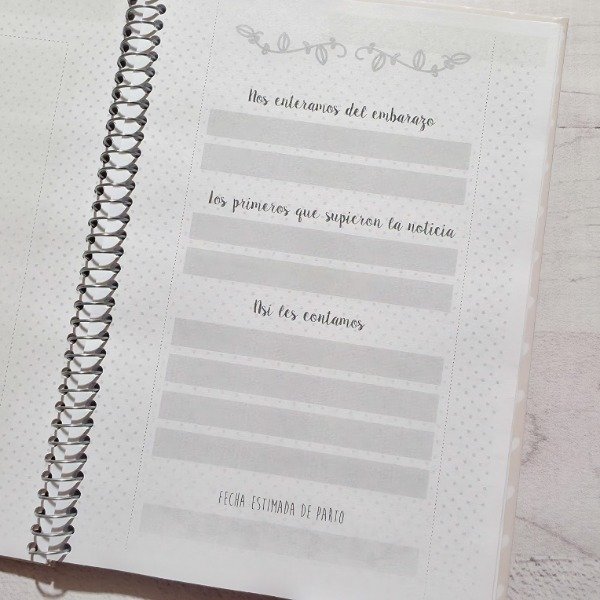 Nos enteramos del embarazo
Los primeros que supieron la noticia
Así les contamos
FECHA ESTIMADA DE PARTO